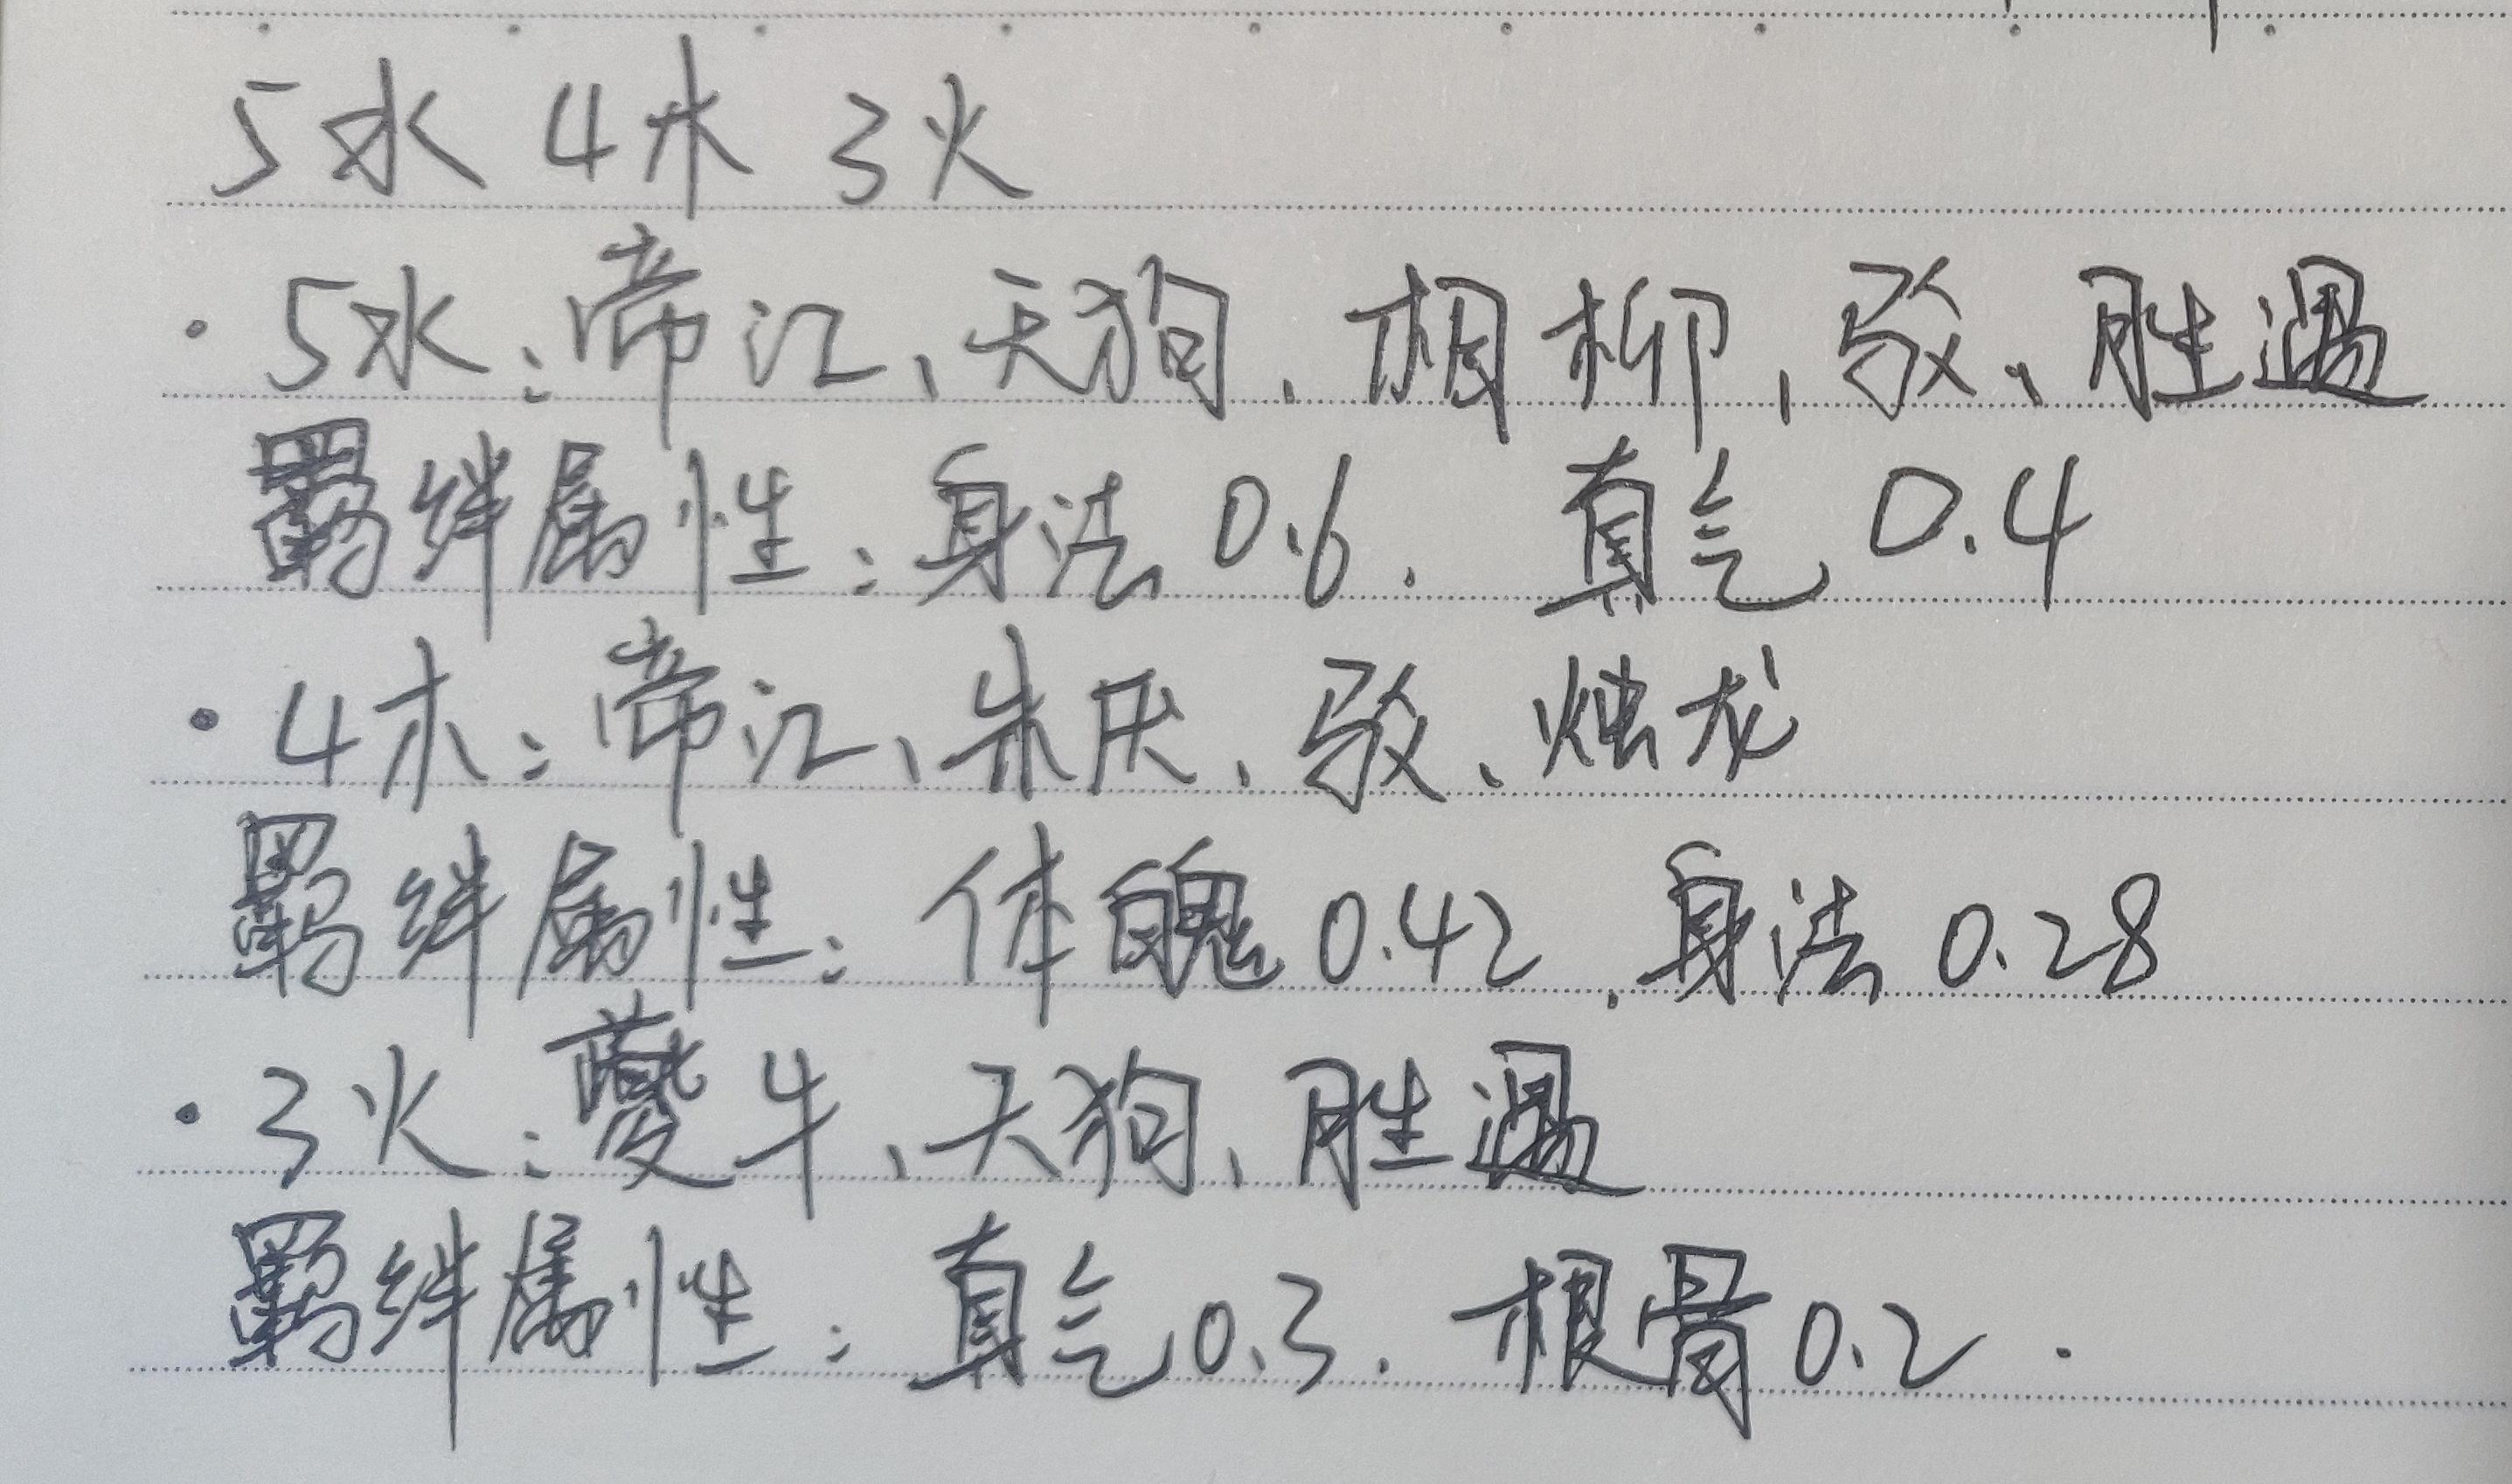 5水 4木 3火
·5水:帝江、天狗、相柳、驳、胜遇
羁绊属性:身法0.6. 真气0.4
·4木:帝江、朱厌、驳、烛龙
羁绊属性:体魄0.42、身法0.28
·3火:夔牛、天狗、胜遇
羁绊属性:真气0.3. 根骨0.2.